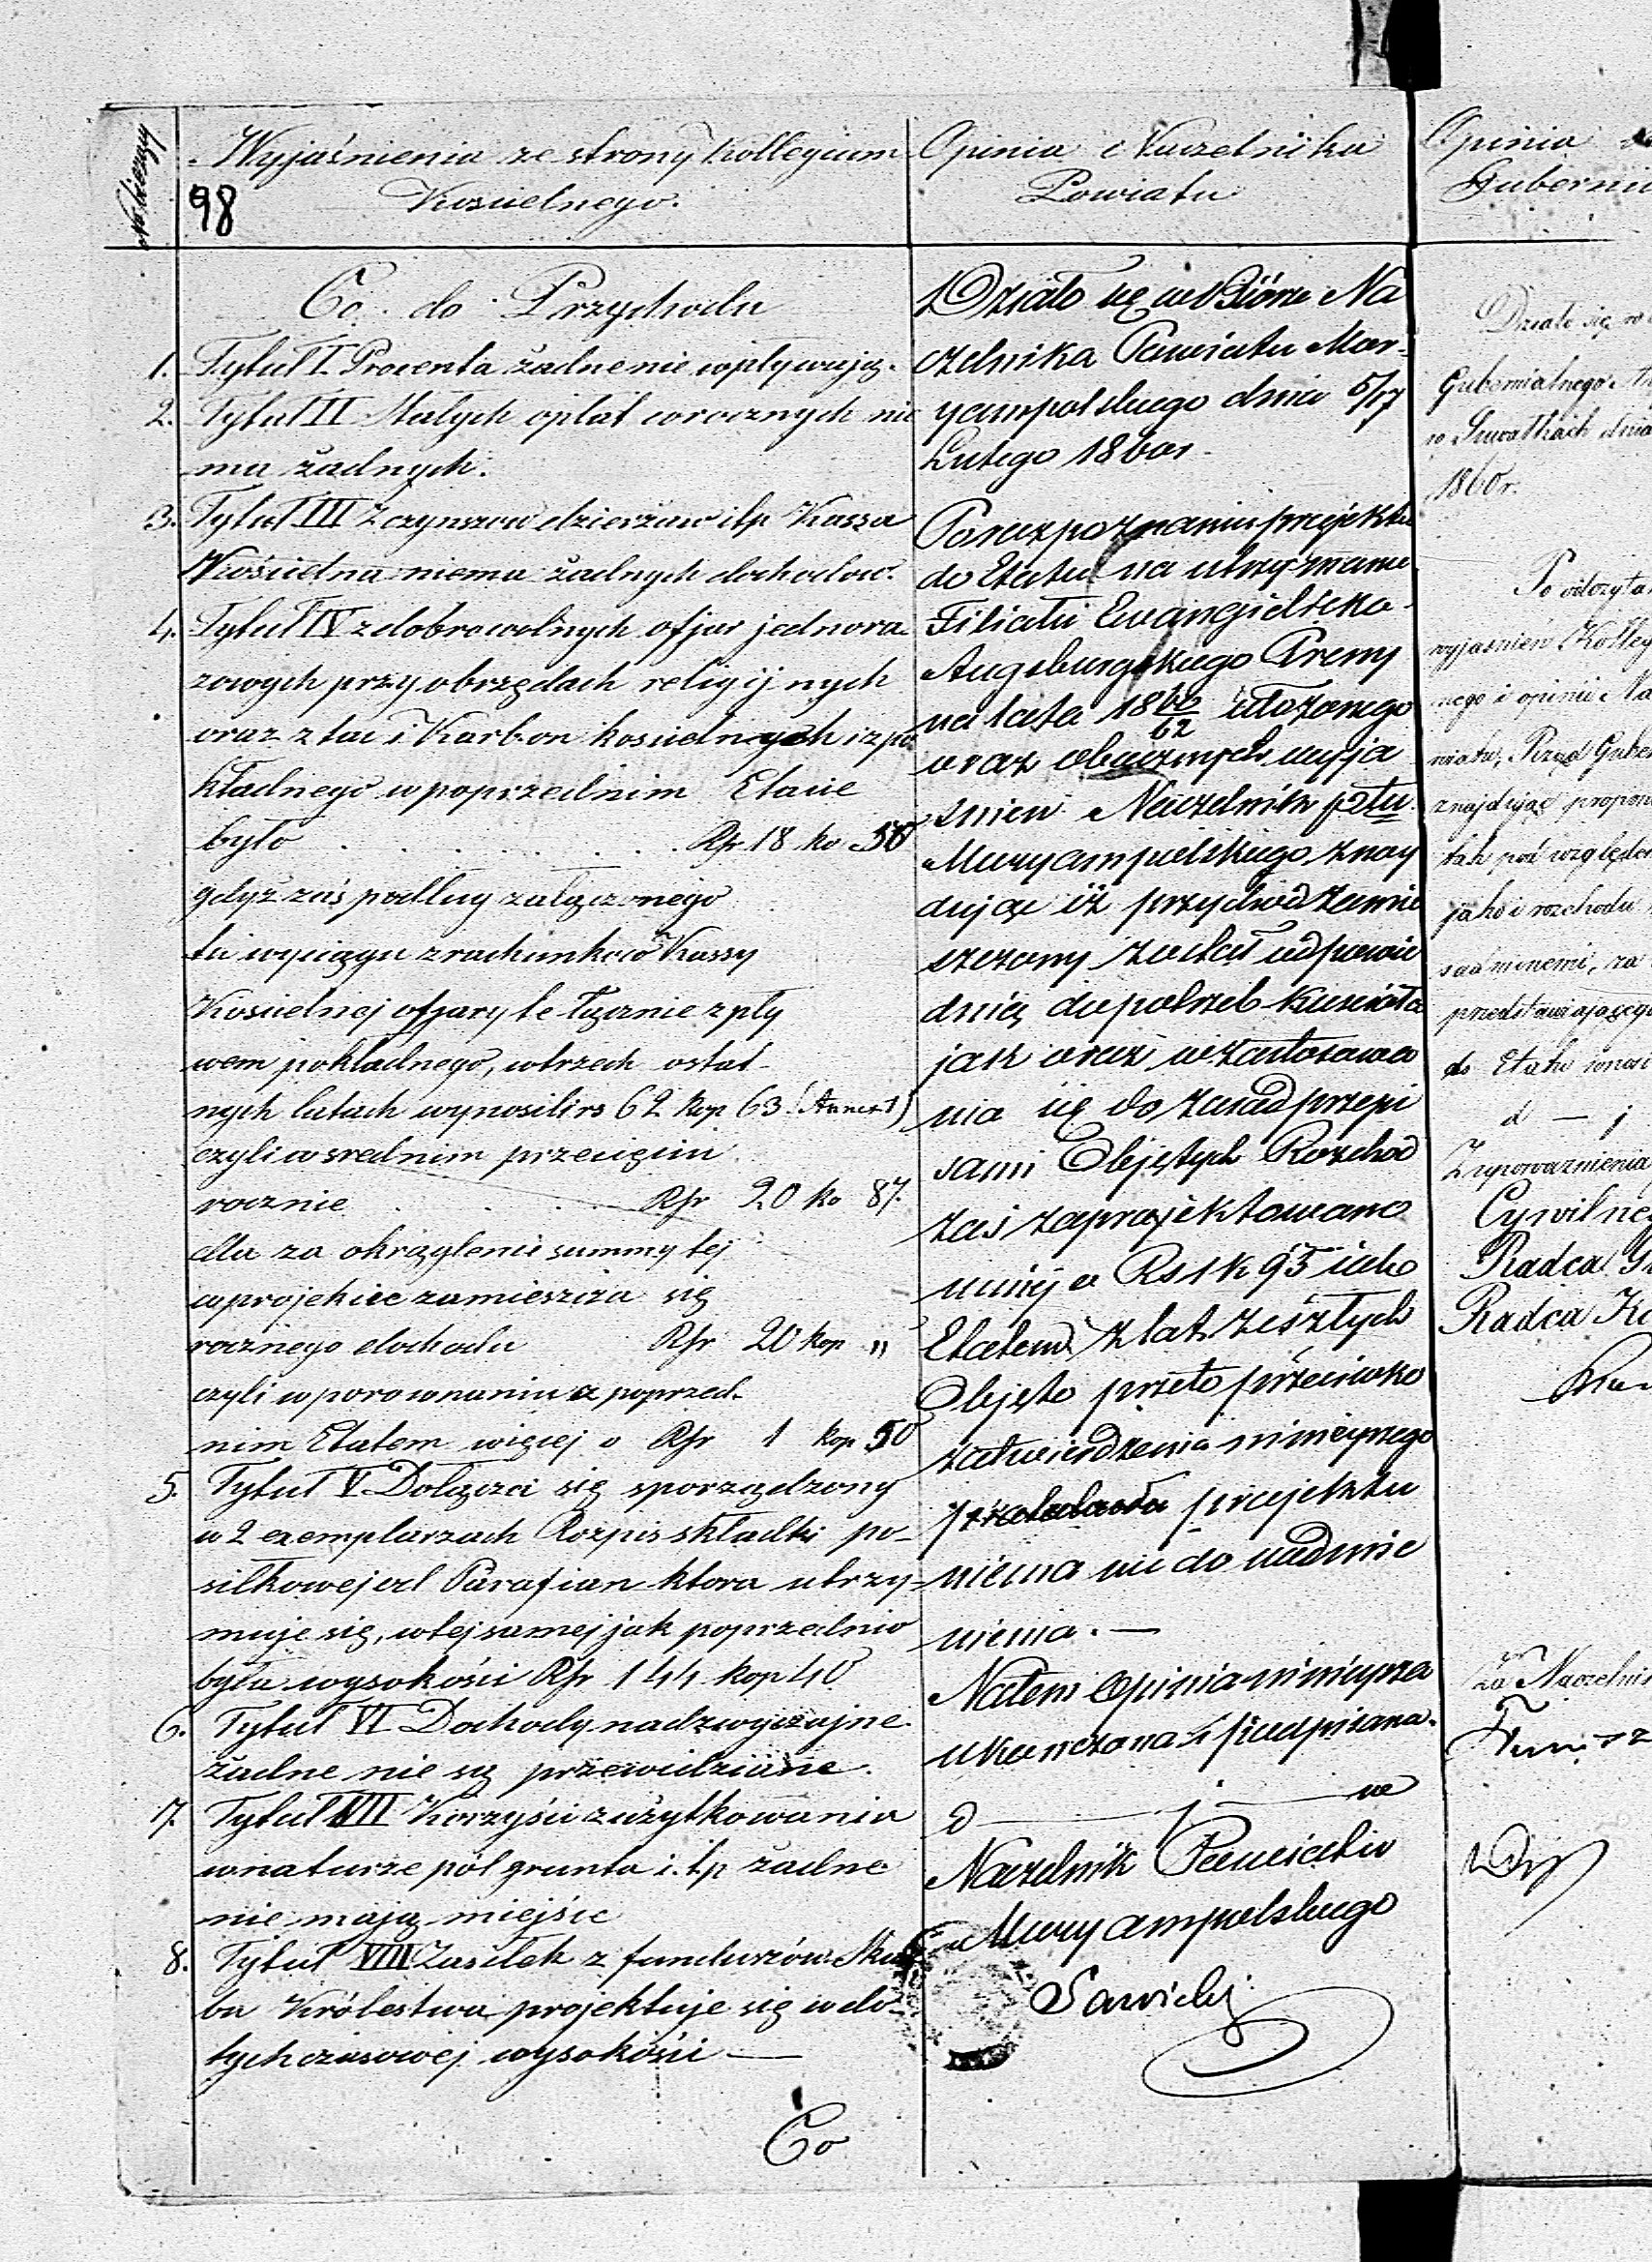 No bieżący
98
Wyjaśnienia ze strony Kollegium
Kościelnego.
Co do Przychodu
1. Tytuł I. Procenta żadne nie wpływają.
2. Tytuł II Małych opłat corocznych nie
ma żadnych.
3. Tytuł III Z czynszów dzierżaw itp Kassa
Kościelna niema żadnych dochodow.
4. Tytuł IV z dobrowolnych ofjar jednora-
zowych przy obrzędach religijnych
oraz z tac i Karbon kościelnych i z po
kładnego w poprzednim Etacie
było . . . . . . . Rsr 18 ko 50
gdyż zaś podług załączonego
tu wyciągu z rachunków Kassy
Kościelnej ofjary te łącznie z pły
wem pokładnego, w trzech ostat-
nych latach wynosili rs 62 kop 63 (Annex 1)
czyli w srednim przecięciu
rocznie . . . . Rsr 20 ko 87.
dla za okrąglenie summy tej
w projekcie zamieszcza się
rocznego dochodu Rsr 20 kop "
czyli w porownaniu z poprzed-
nim Etatem więcej o Rsr 1 kop 50
5. Tytuł V. Dołącza się sporządzony
w 2 exemplarzach Rozpis składki po-
siłkowej od Parafian ktora utrzy-
muje się, w tej samej jak poprzednio
była wysokości Rsr 144 kop 40
6. Tytuł VI Dochody nadzwyczajne
żadne nie są przewidziane.
7. Tytuł VII Korzyści z użytkowania
w naturze pól grunta i. t.p żadne
nie mają miejsce
8. Tytuł VIII Zasiłek z funduszów Skar
bu Królestwa projektuje się w do-
tychczasowej wysokości —
Co
Opinia Naczelnika
Powiatu
Działo się w Biórze Na
czelnika Powiatu Mar-
yampolskiego dnia 5/17
Lutego 1860r.
Po rozpoznaniu projektu
do Etatu na utrzymanie
Filiału Ewangielicko
Augsburgskiego Preny
na lata 1860/62 ułożonego
oraz obocznych wyja
śnień Naczelnik Ptu
Maryampolskiego znay
dując iż przychód zamie
szczony został odpowie
dnią do potrzeb Kościoła
jak oraz w zastosowa
nia się do zasad przepi
sami Objętych Rozchod
zaś zaprojektowano
mniej o Rs 1 k 95 jako
Etatem z lat zeszłych
Objęto przeto przeciwko
zatwierdzenia ninieyszego
projektu
niema nic do nadmie
nienia. —
Na tem Opinia ninieysza
ukończona i podpisana.
d — j — w
Naczelnik Powiatu
Maryampolskiego
Sawicki
Opinia
Guberni
Działo się w
Gubernialnego
w Suwałkach dnia
1860r.
Po odczyta
wyjaśnień Kolleg
nego i opinii Na
wiatu, Rząd Guber
znajdując propon
tak pod względem
jako i rozchodu
sadnionemi, za
przedstawiającego
do Etatu wnosi
d — j
Z upoważnienia
Cywilne
Radca
Radca
za Naczelni